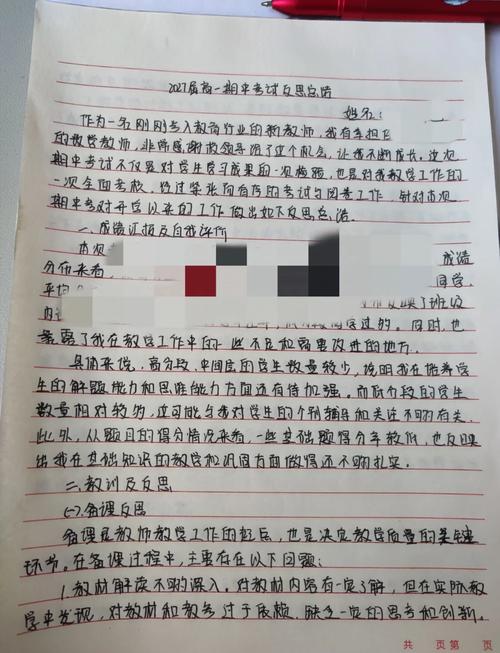 2027届高一期中考试反思总结
姓名:
作为一名刚刚步入教育行业的新教师,我有幸担任
的数学教师,非常感谢校领导给了这个机会,让我不断成长。这次
期中考试不仅是对学生学习成果的一次检验,也是对我教学工作的
一次全面考核。经过紧张而有序的考试与阅卷工作,针对本次
期中考对开学以来的工作做出如下反思总结。
一、成绩汇报及自我评价
本次 成绩
分布来看, 同学,
平均 反映了班级
内 的。同时,也
暴露了我在教学工作中的一些不足和需要改进的地方。
具体来说,高分段、中间层的学生数量较少,说明我在培养学
生的解题能力和思维能力方面还有待加强。而低分段的学生
数量相对较多,这可能与我对学生的个别辅导和关注不够有关。
此外,从题目的得分情况来看,一些基础题得分率较低,也反映
出我在基础知识的教学和巩固方面做得还不够扎实。
二、教训及反思
(一)备课反思
备课是教师教学工作的起点,也是决定教学质量的关键
环节。在备课过程中,主要存在以下问题:
1.教材解读不够深入。对教材内容有一定了解,但在实际教
学中发现,对教材和教参过于依赖,缺乏一定的思考和创新。
共 页 第 页